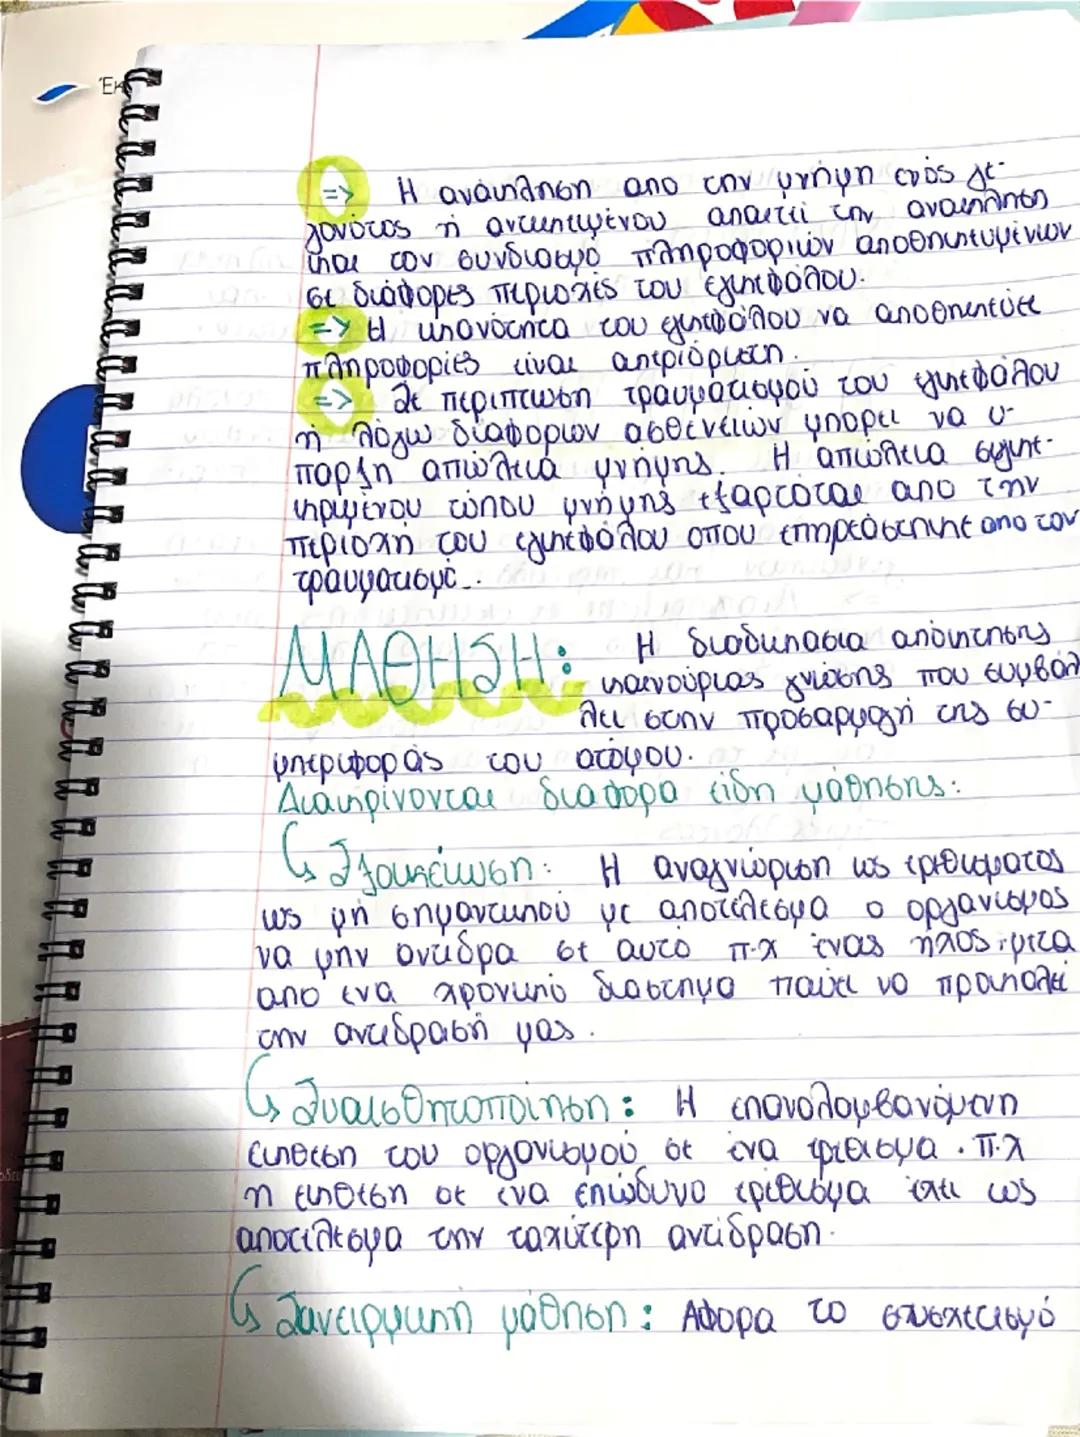 Έκ
=> Η ανάκληση απο την μνήμη ενός γε-
γονότος ή αντικειμένου απαιτεί την ανακληση
και τον συνδιασμό πληροφοριών αποθηκευμένων
σε διάφορες περιοχές του εγκεφάλου.
=> Η ικανότητα του εγκεφάλου να αποθηκεύσει
πληροφορίες είναι απεριόριστη.
=> Σε περιπτωση τραυματισμού του εγκεφάλου
ή λόγω διαφοριων ασθενειών μπορει να υ-
παρξη απώλεια μνήμης. Η απώλεια συγκε-
κριμένου τύπου μνήμης εξαρτάται απο την
περιοχή του εγκεφάλου οπου επηρεάστηκε απο τον
τραυματισμό.
ΜΑΘΗΣΗ: Η διαδικασια απόκτησης
καινούριας γνώσης που συμβάλ
λει στην προσαρμογή της συ-
μπεριφοράς του ατόμου.
Διακρίνονται διαφορα είδη μάθησης:
Εξοικείωση: Η αναγνώριση ως ερεθισματος
ως μη σημαντικού με αποτέλεσμα ο οργανισμος
να μην αντιδρα σε αυτό π.χ ένας ήχος μετα
απο ένα χρονικό διαστημα παύει να προκαλεί
την αντιδραση μας.
Ευαισθητοποίηση: Η επαναλαμβανόμενη
εκθεση του οργανισμού σε ένα ερεθισμα. π.χ
η εκθεση σε ένα επώδυνο ερέθισμα εχει ως
αποτέλεσμα την ταχύτερη αντίδραση.
Συνειρμική μάθηση: Αφορα το συσχετισμό